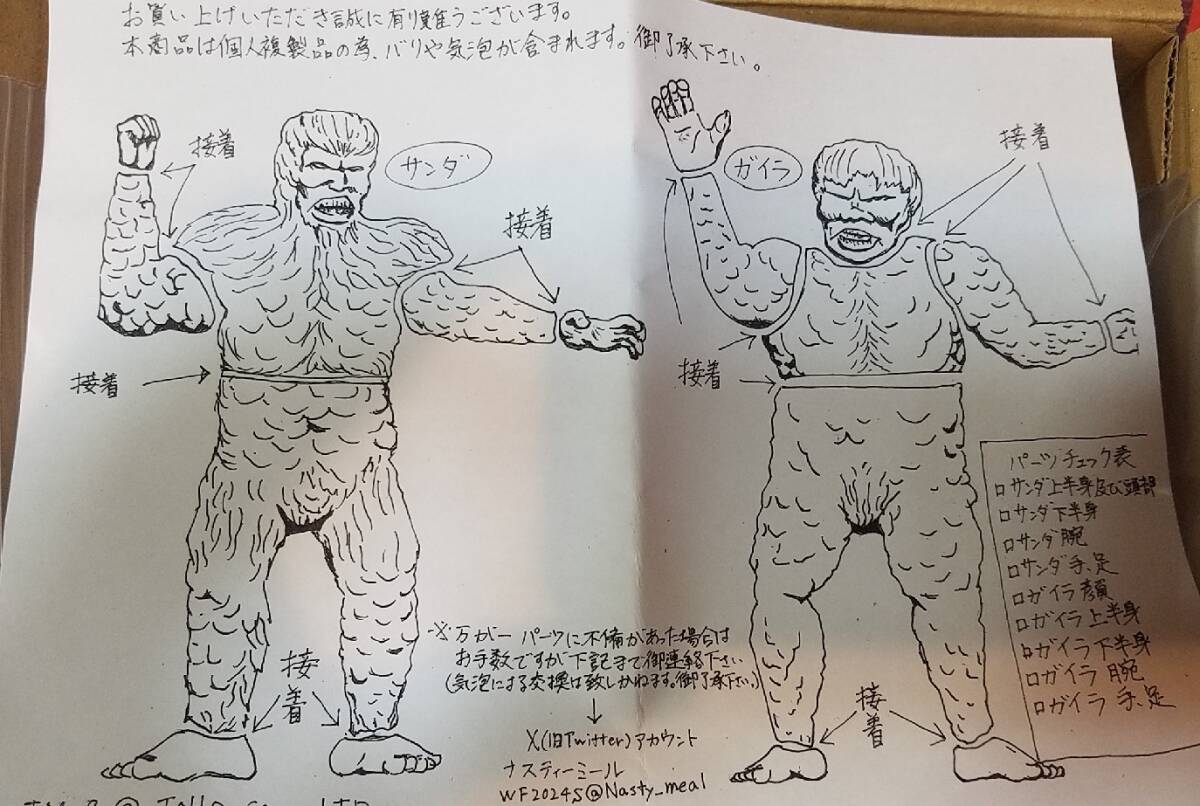 お買い上げいただき誠に有り難うございます。
本商品は個人複製品の為、バリや気泡が含まれます。御了承下さい。
接着
サンダ
接着
接着
ガイラ
接着
接着
接着
パーツチェック表
ロサンダ上半身及び頭部
ロサンダ下半身
ロサンダ腕
ロサンダ手、足
ロガイラ顔
ロガイラ上半身
ロガイラ下半身
ロガイラ腕
ロガイラ手、足
※万が一パーツに不備があった場合は
お手数ですが下記まで御連絡下さい
(気泡による交換は致しかねます。御了承下さい。)
接着
接着
X(旧Twitter)アカウント
ナスティーミール
WF2024S@Nasty_meal